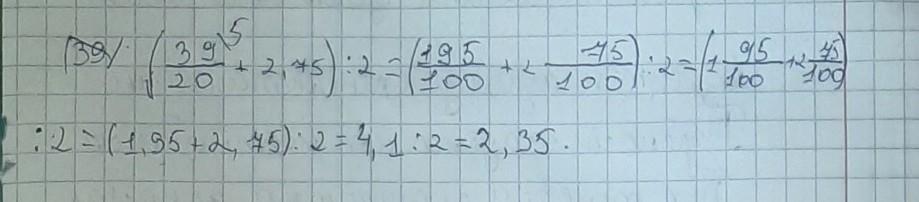 39) (39/20 ⁵ + 2,75) : 2 = (195/100 + 2 75/100) : 2 = (1 95/100 + 2 75/100)
: 2 = (1,95 + 2,75) : 2 = 4,1 : 2 = 2,35.